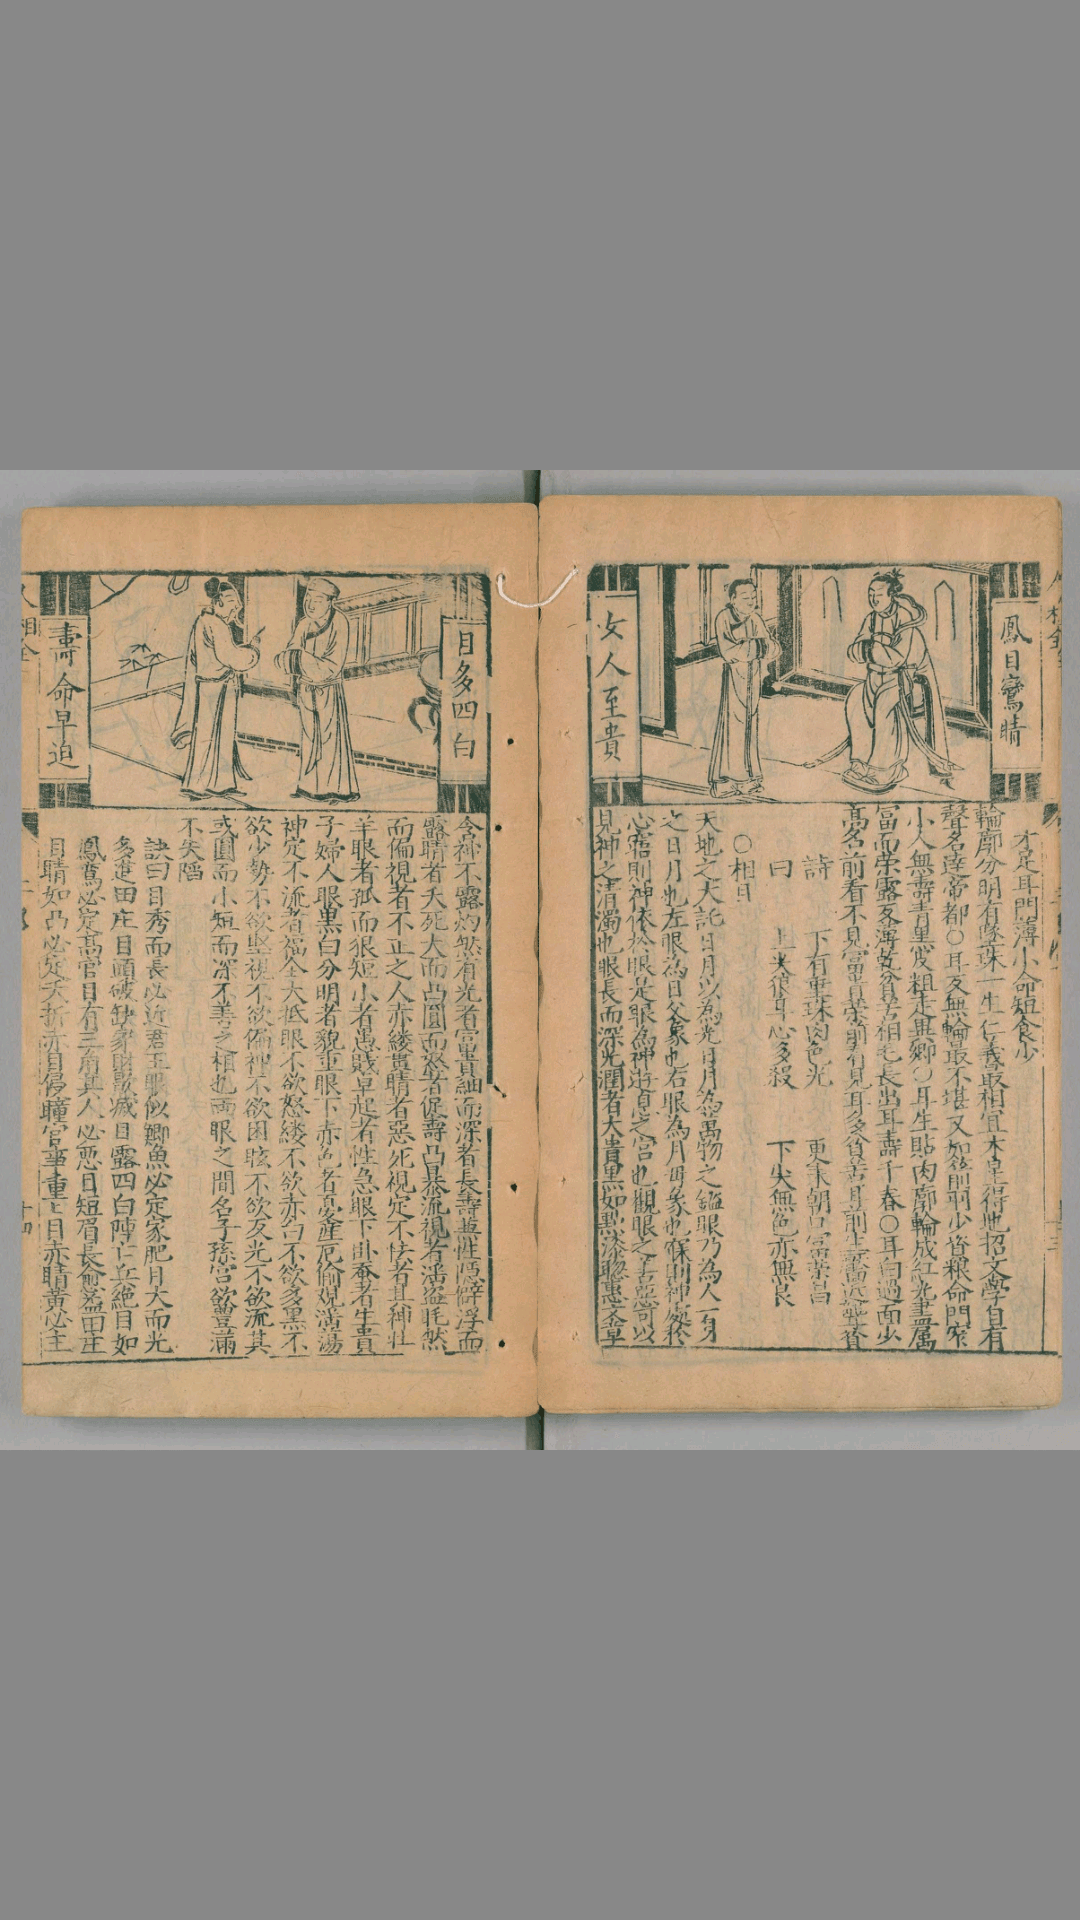 鳳目鸞睛
女人至貴
才足耳門薄小命短食少
輪廓分明有墜珠一生仁義最相宜木星得地招文學自有
聲名達帝都○耳反無輪最不堪又如箭羽少資粮命門窄
小人無壽青黑皮粗走異鄉○耳生貼肉廓輪成紅光盡属
冨而榮露反薄乾貧苦相毛長出耳壽千春○耳白過面少
高名前看不見冨貴榮前看見耳多貧苦
詩 下有垂珠肉色光 更来朝口冨榮昌
曰 上尖狼耳心多殺 下尖無色亦無良
○相目
天地之大託日月以為光日月為萬物之鑑眼乃為人一身
之日月也左眼為日父象也右眼為月母象也寐則神處於
心寤則神依於眼是眼為神遊息之宮也觀眼之善惡可以
見神之清濁也眼長而深光潤者大貴黒如點漆聰惠文章
目多四白
壽命早迫
含神不露灼然有光者冨貴細而深者長壽兼性隱僻浮而
露睛者夭死大而凸圓而怒者促壽凸暴流視者淫盗眊然
而偏視者不正之人赤縷貫睛者惡死視定不怯者其神壮
羊眼者孤而狠短小者愚賤卓起者性急眼下卧蚕者生貴
子婦人眼黒白分明者貌重眼下赤色者憂産厄偷視淫蕩
神定不流者福全大抵眼不欲怒縷不欲赤白不欲多黒不
欲少勢不欲竪視不欲偏神不欲困眩不欲反光不欲流其
或圓而小短而深不善之相也兩眼之間名子孫宮欲豐滿
不失陷
訣曰目秀而長必近君王眼似鯽魚必定家肥目大而光
多進田庄目頭破缺家財歇滅目露四白陣亡兵絶目如
鳳鸞必定高官目有三角其人必悪目短眉長愈益田庄
目睛如凸必定夭折赤目侵瞳官事重重目赤睛黄必主